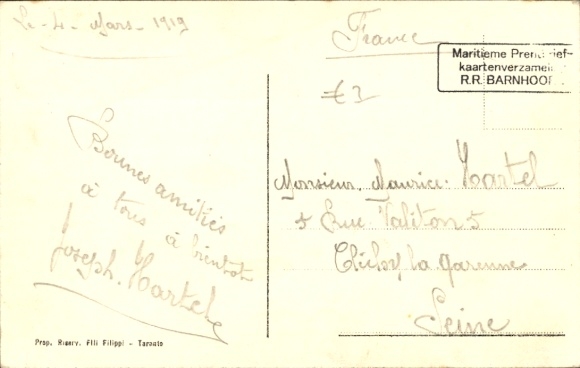 Le - 4 - Mars - 1919
France
Maritieme Prentbrief-
kaartenverzamel
R.R. BARNHOOR
€3
Bonnes amitiés
à tous à bientot
Joseph. Martel
Monsieur. Maurice. Martel
5 Rue 5
Clichy la garenne
Seine
Prop. Riserv. Flli Filippi - Taranto